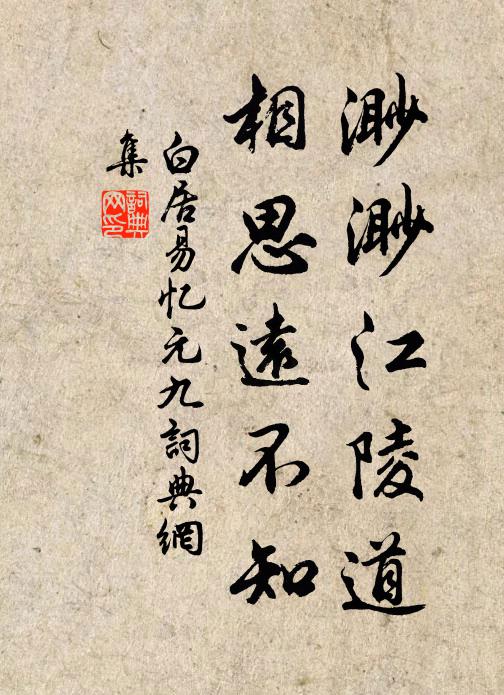 渺渺江陵道
相思遠不知
白居易忆元九詞典網
集
詞典
网印